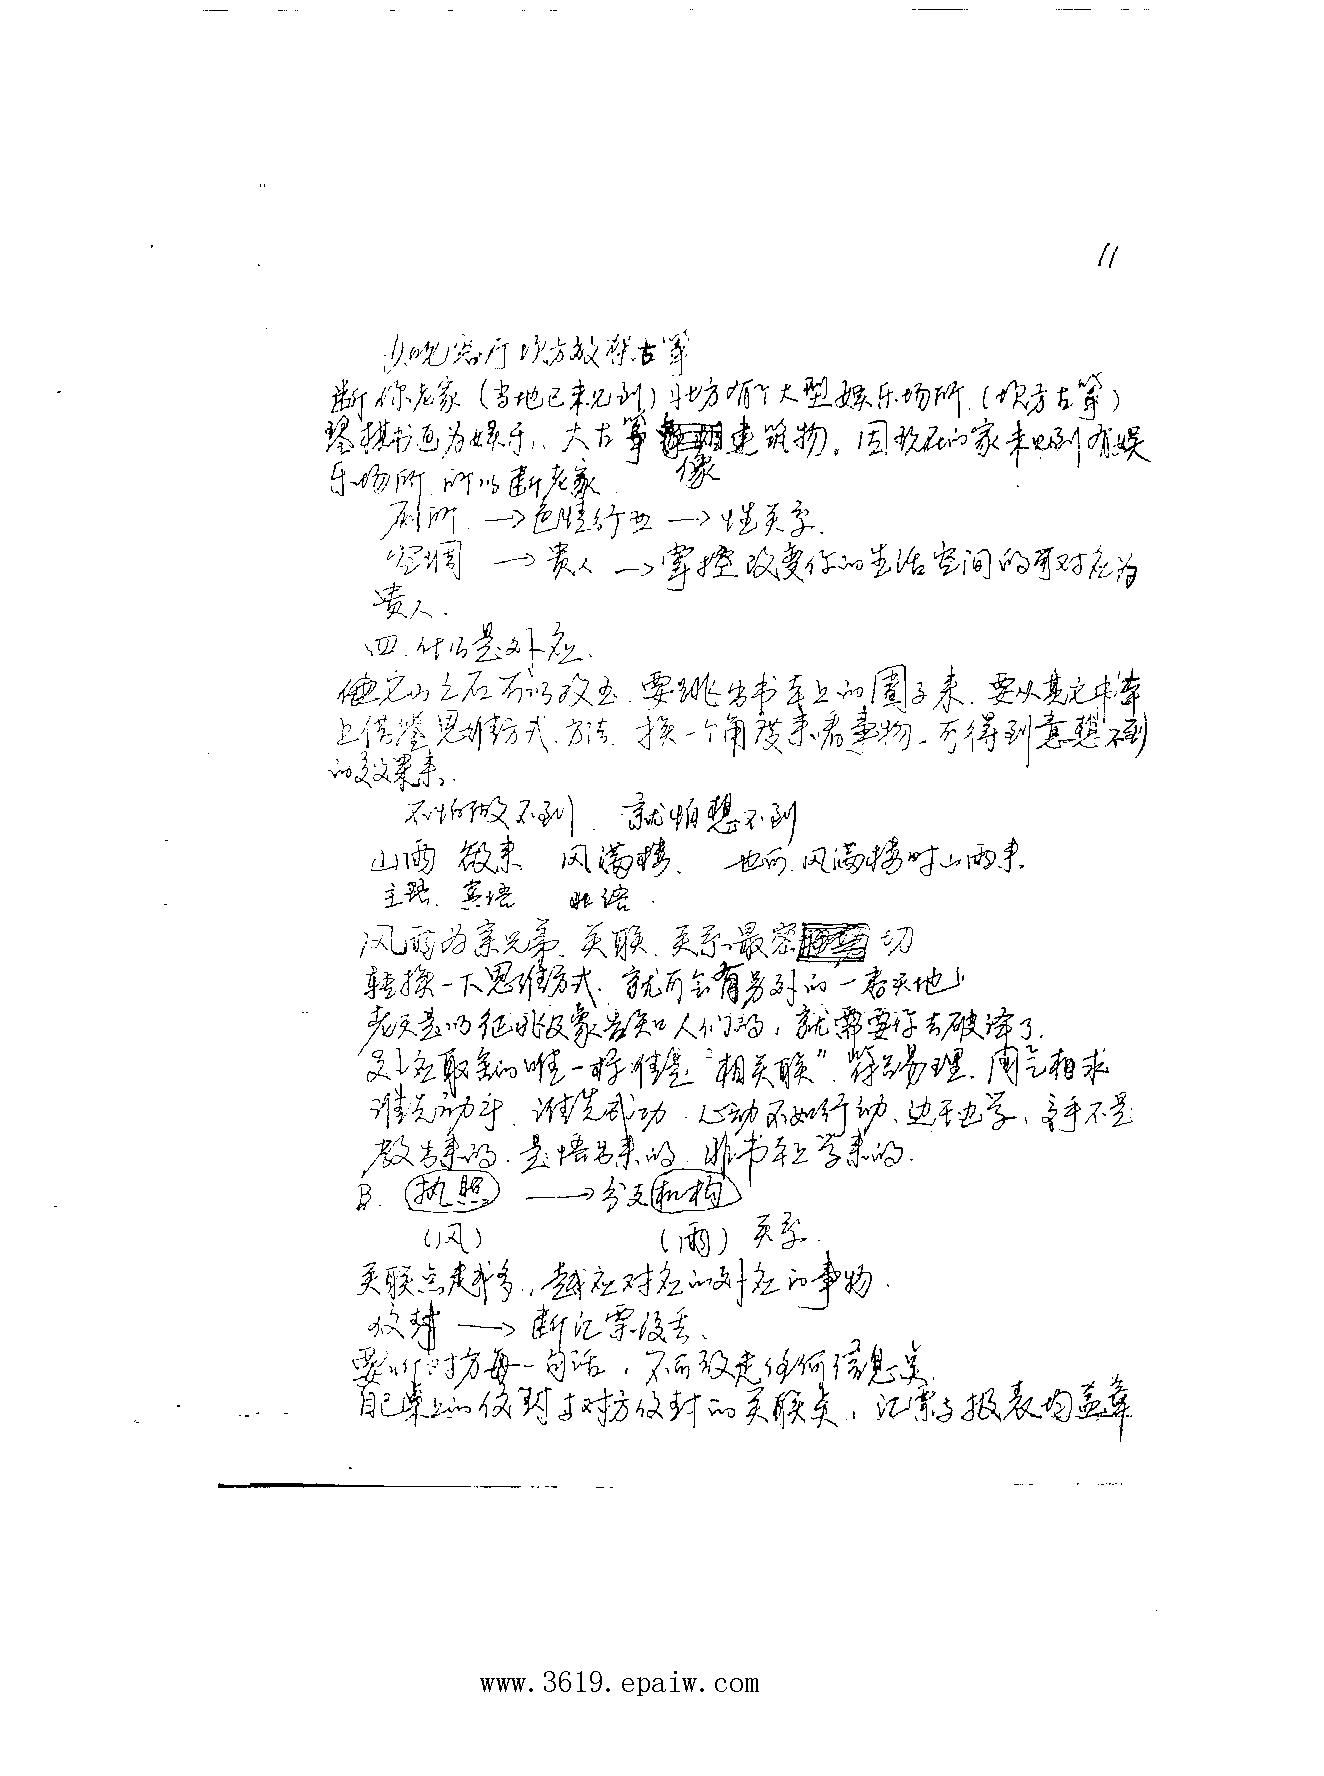 11
客厅坎方放架古筝
断你老家(当地已未见到)北方有个大型娱乐场所.(坎方古筝)
琴棋书画为娱乐,大古筝像建筑物。因现在的家未见到有娱
乐场所 所以断老家.
厕所 → 色情行业 → 性关系.
空调 → 贵人 → 掌控改变你的生活空间的可对应为
贵人.
四.什么是外应.
他山之石可以攻玉.要跳出书本上的圈子来.要从其它书本
上借鉴思维方式.方法.换一个角度来看事物.可得到意想不到
的效果来.
不怕做不到.就怕想不到
山雨 欲来 风满楼. 也即.风满楼时山雨来.
主语. 宾语
风雨为亲兄弟.关联.关系最密切
转换一下思维方式.就可会有另外的一番天地
老天是以征兆及象告知人们的,就需要你去破译了.
外应取象的唯一标准是"相关联".符合易理.同气相求
谁先动手.谁先成功.心动不如行动.边干边学.高手不是
教出来的.是悟出来的.非书本上学来的.
B. 执照 → 分支机构
(风) (雨) 关系.
关联点越多,越应对应的外应的事物.
→ 断汇票没丢.
要听对方每一句话,不可放走任何信息点.
自己桌上的 与对方 的关联点,汇票与报表均盖章
www.3619.epaiw.com